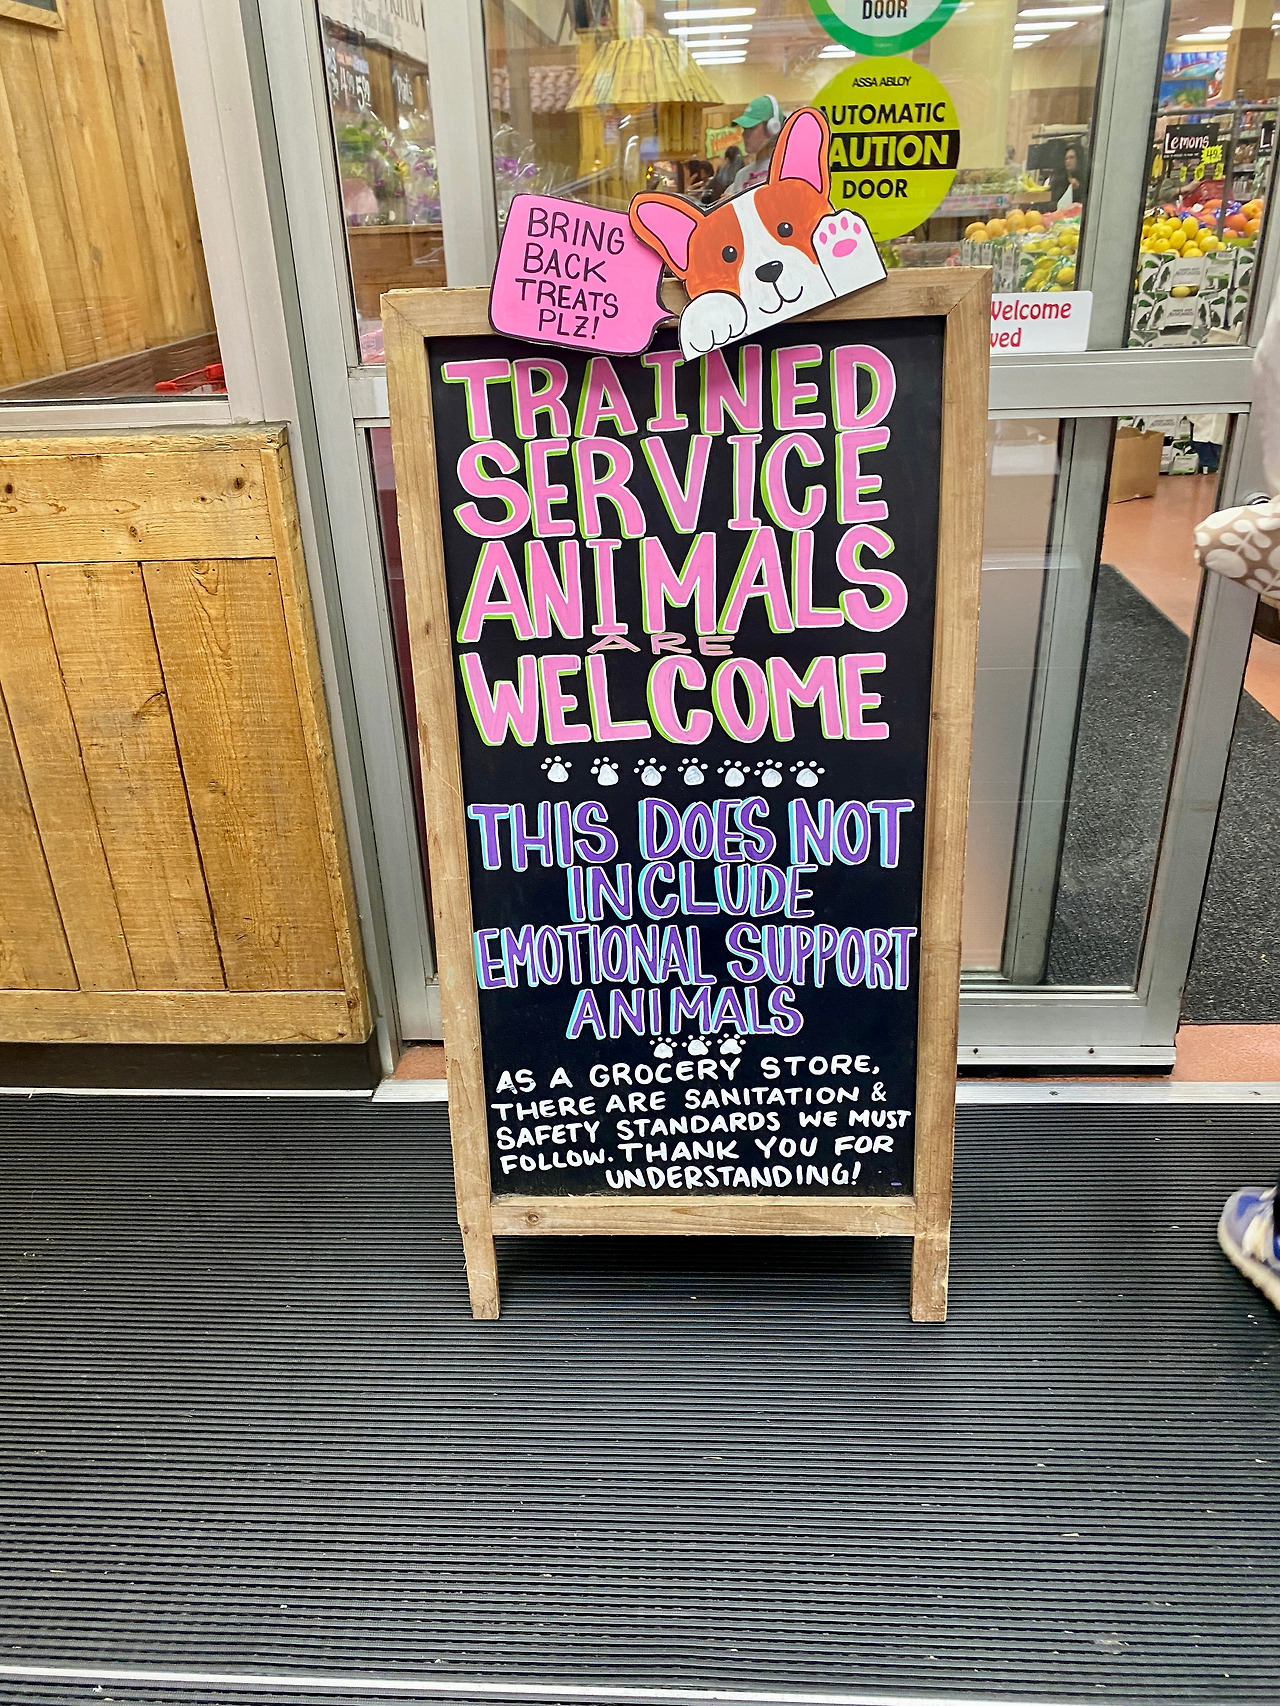 DOOR
ASSA ABLOY
AUTOMATIC
CAUTION
DOOR
Lemons
49¢
BRING
BACK
TREATS
PLZ!
Welcome
TRAINED
SERVICE
ANIMALS
ARE
WELCOME
THIS DOES NOT
INCLUDE
EMOTIONAL SUPPORT
ANIMALS
AS A GROCERY STORE,
THERE ARE SANITATION &
SAFETY STANDARDS WE MUST
FOLLOW. THANK YOU FOR
UNDERSTANDING!